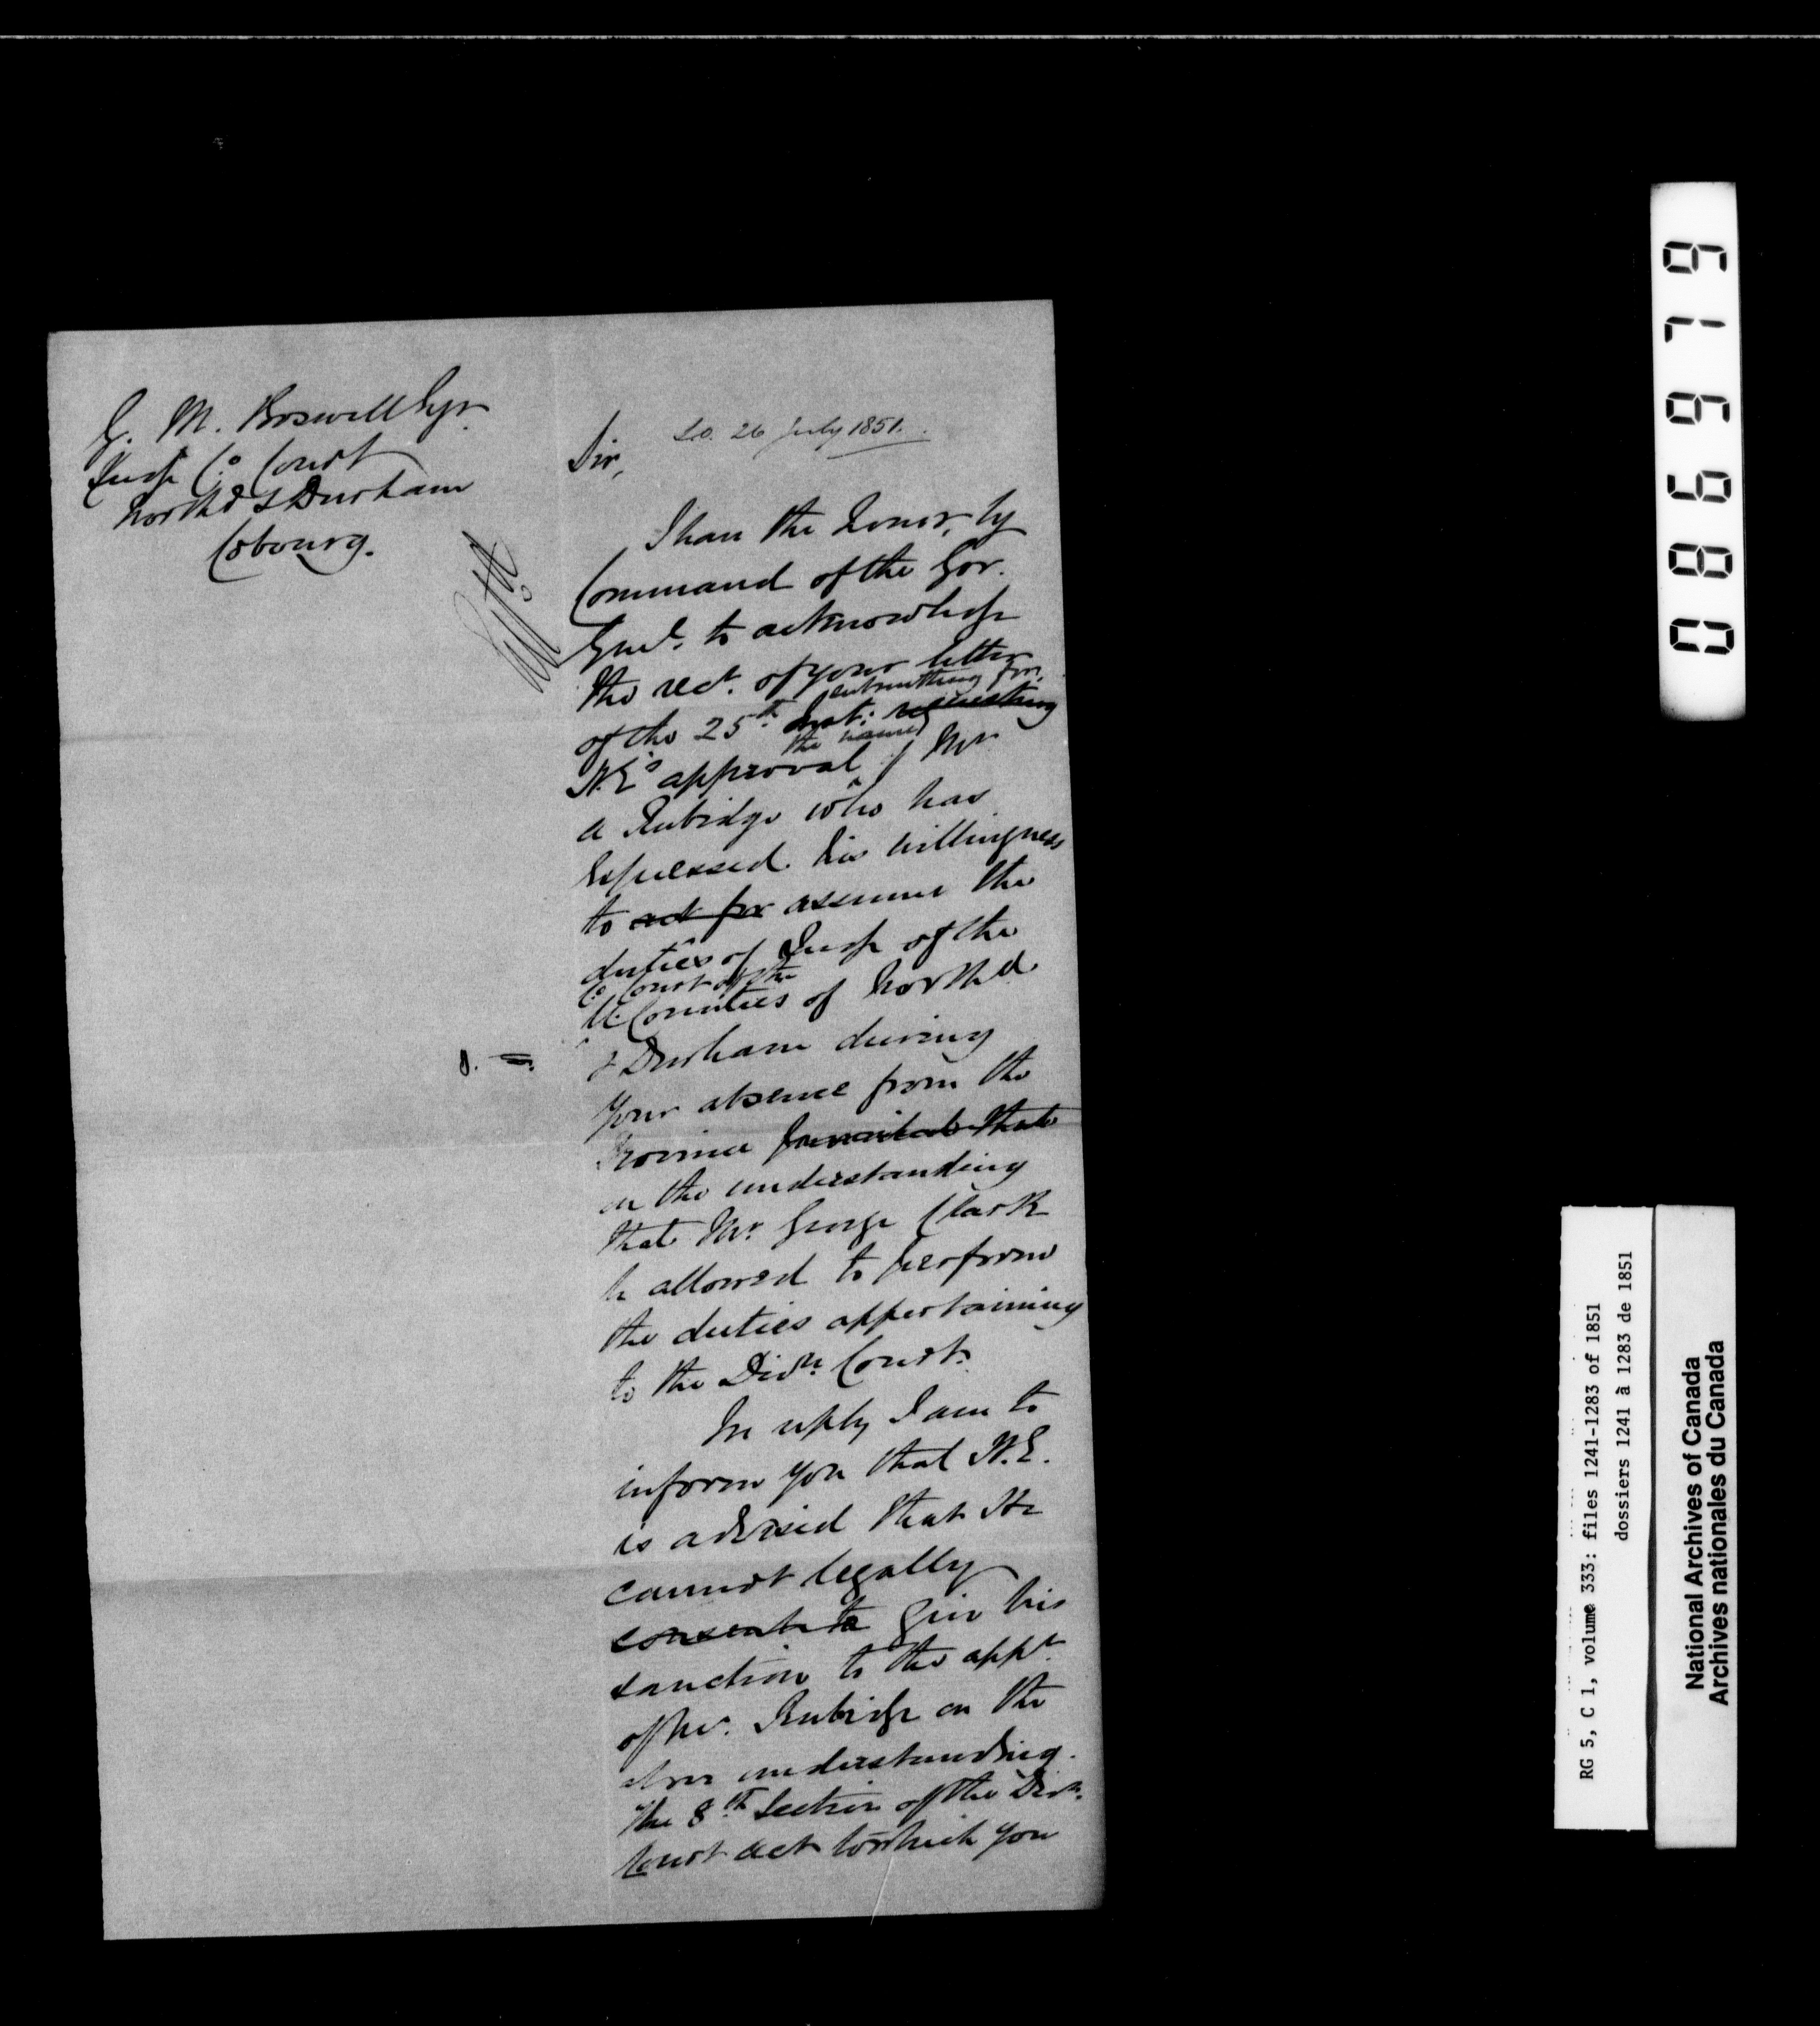 G. M. Boswell Esqr
Judge Co. Court
North'd & Durham
Cobourg.
S.O. 26 July 1851.
Sir,
I have the honor, by
Command of the Gov.
Genl. to acknowledge
the rect. of your letter
of the 25th Inst: requesting submitting for
H.E's approval the name of Mr
A Rubidge who has
expressed his willingness
to act for assume the
duties of Judge of the
Co. Court of the
U. Counties of North'd
& Durham during
your absence from the
Province that
on the understanding
that Mr George Clark
be allowed to perform
the duties appertaining
to the Divn. Court.
In reply I am to
inform you that H.E.
is advised that He
cannot legally
consent to give his
sanction to the appt.
of Mr. Rubidge on the
above understanding.
The 8th Section of the Divn.
Court Act to which you
086979
RG 5, C 1, volume 333: files 1241-1283 of 1851
dossiers 1241 à 1283 de 1851
National Archives of Canada
Archives nationales du Canada